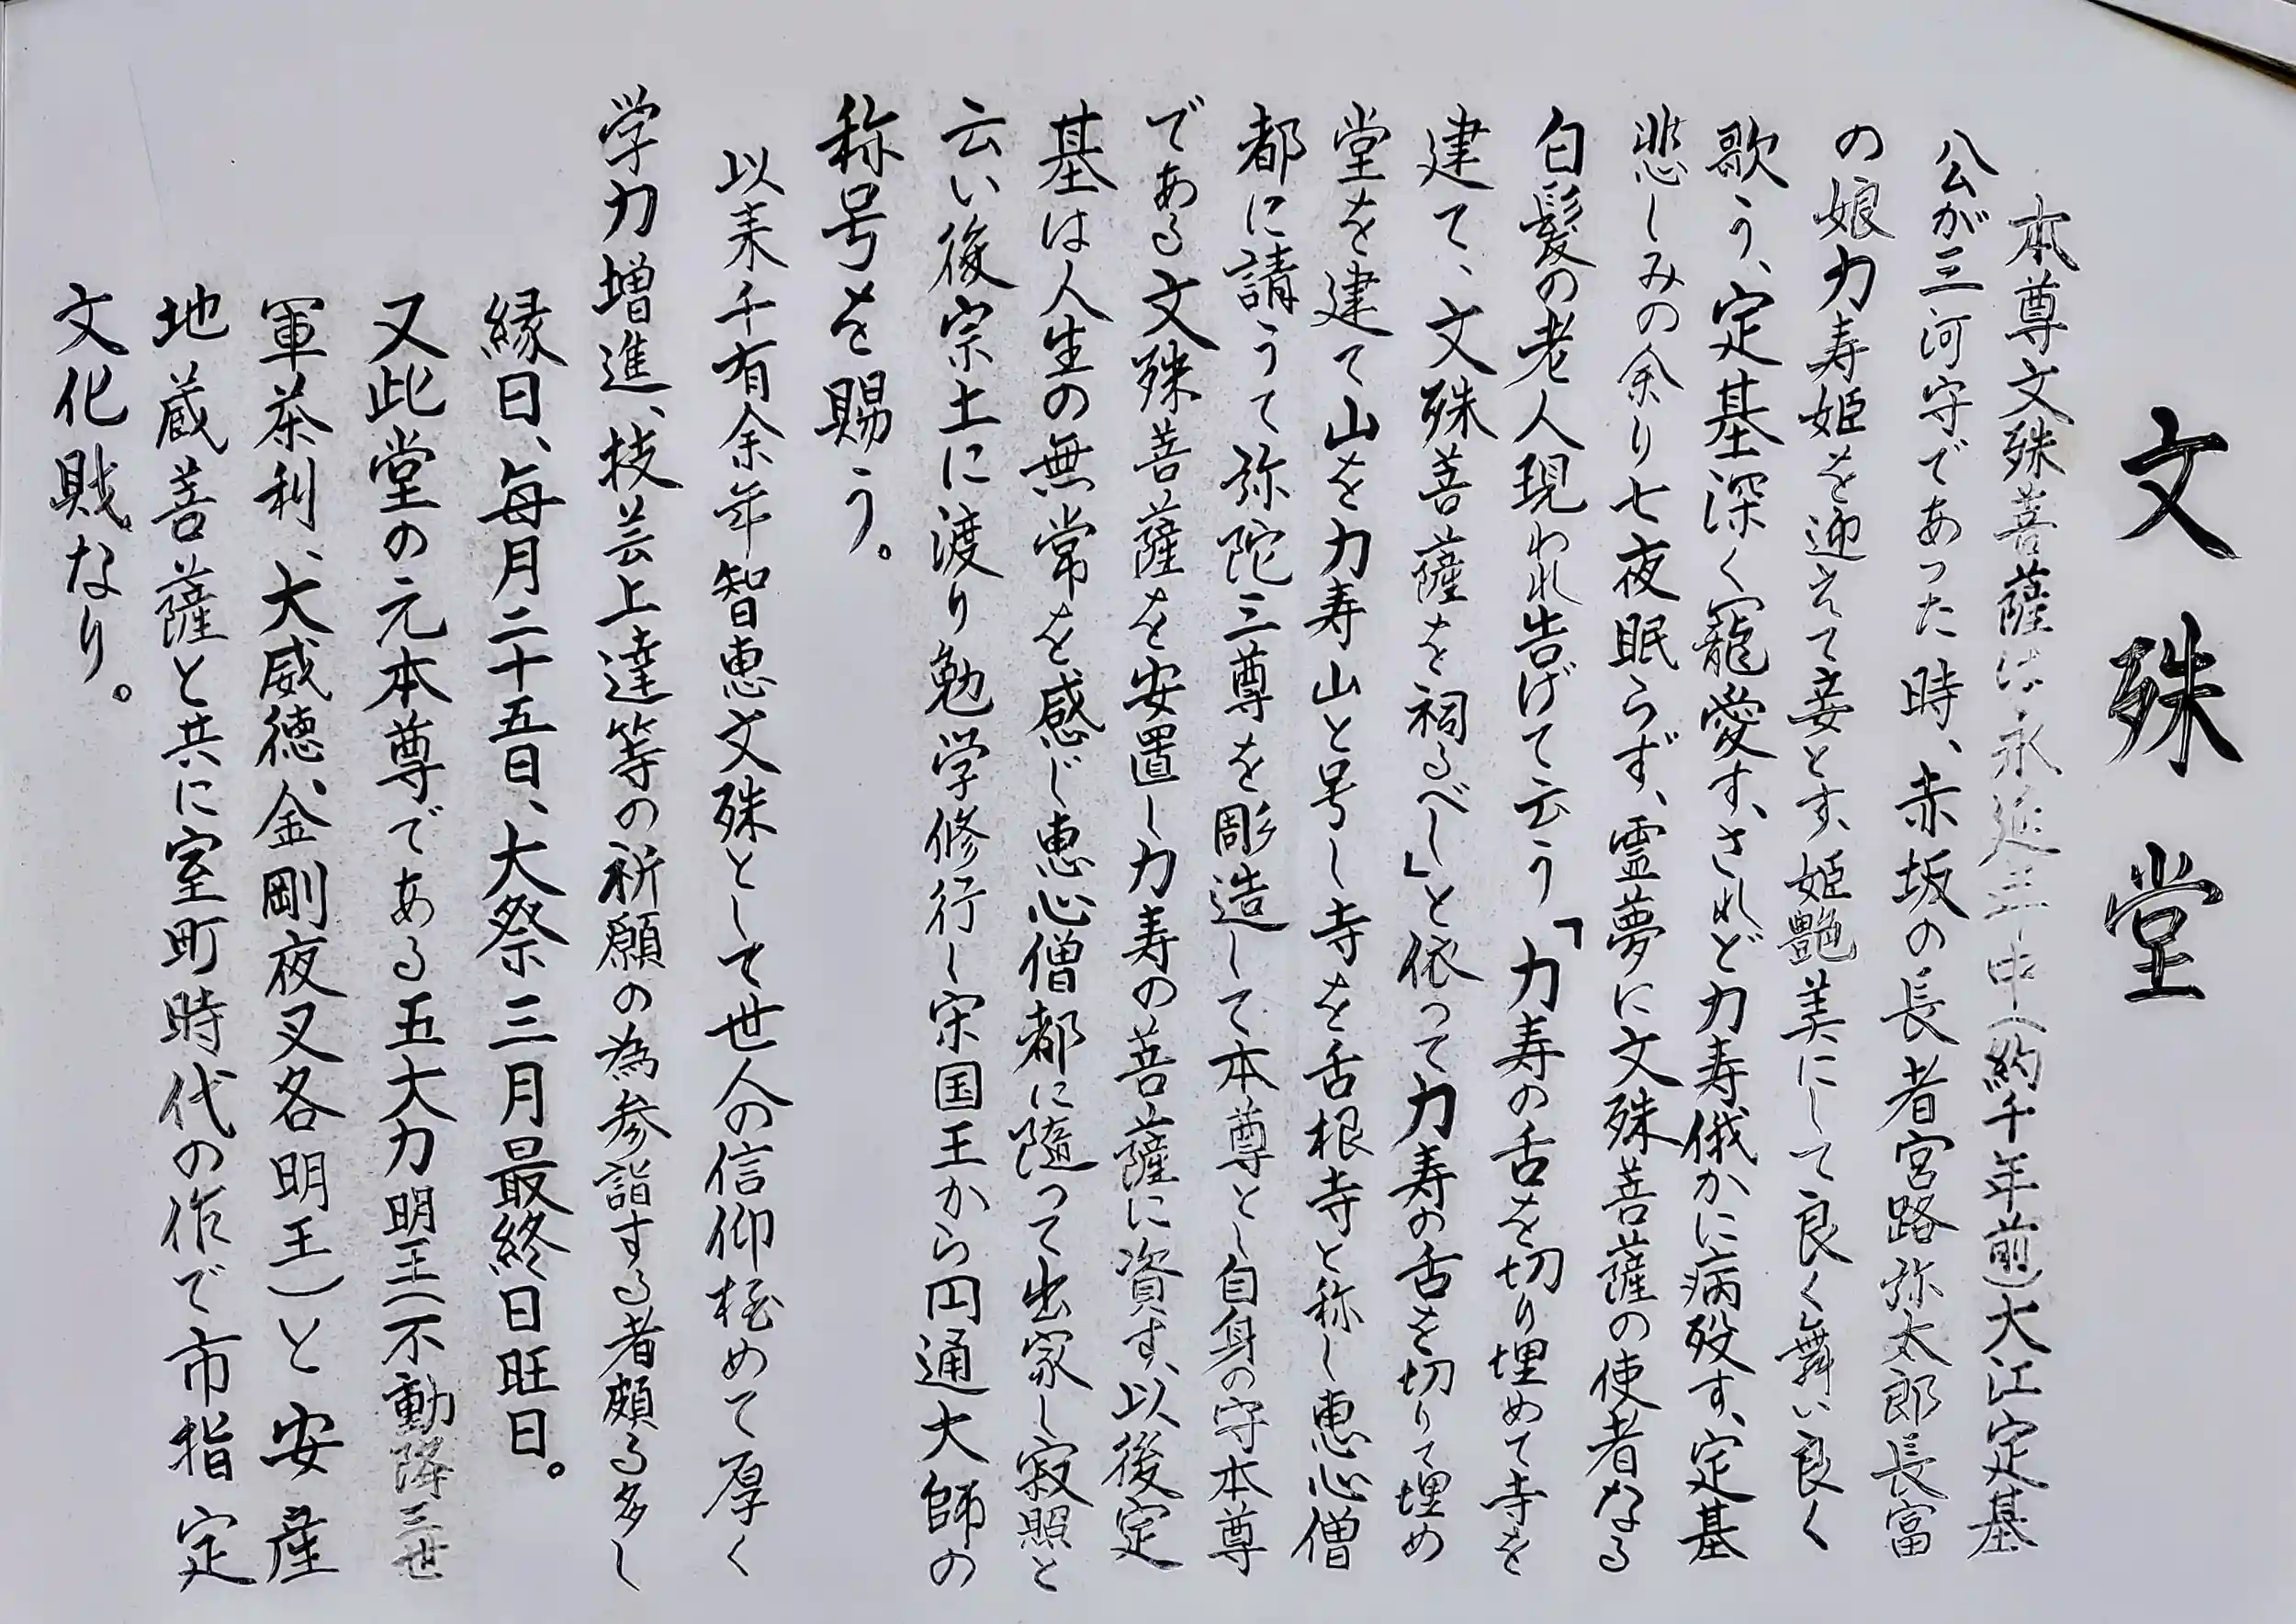 文殊堂
本尊文殊菩薩は永延年中(約千年前)大江定基
公が三河守であった時、赤坂の長者宮路弥太郎長富
の娘力寿姫を迎えて妾とす、姫艶美にして良く舞い良く
歌う、定基深く寵愛す、されど力寿俄かに病歿す、定基
悲しみの余り七夜眠らず、霊夢に文殊菩薩の使者なる
白髪の老人現われ告げて云う「力寿の舌を切り埋めて寺を
建て、文殊菩薩を祠るべし」と依って力寿の舌を切りて埋め
堂を建て山を力寿山と号し寺を舌根寺と称し恵心僧
都に請うて弥陀三尊を彫造して本尊とし自身の守本尊
である文殊菩薩を安置し力寿の菩薩に資す、以後定
基は人生の無常を感じ恵心僧都に随って出家し寂照と
云い後宗土に渡り勉学修行し宋国王から円通大師の
称号を賜う。
以来千有余年智恵文殊として世人の信仰極めて厚く
学力増進、技芸上達等の祈願の為参詣する者頗る多し
縁日、毎月二十五日、大祭三月最終日旺日。
又此堂の元本尊である五大力明王(不動降三世
軍茶利、大威徳、金剛夜叉各明王)と安産
地蔵菩薩と共に室町時代の作で市指定
文化財なり。